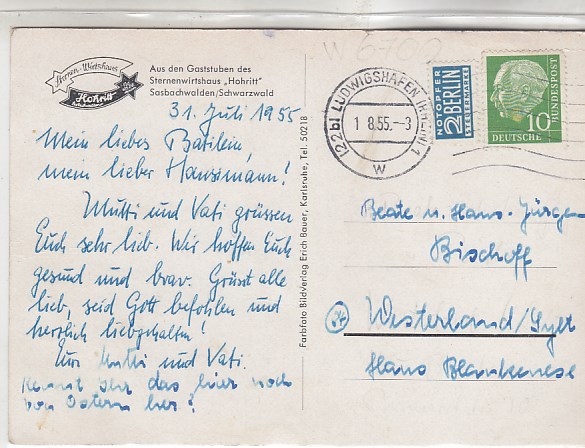 Sternen-Wirtshaus
Hohritt
Aus den Gaststuben des
Sternenwirtshaus „Hohritt"
Sasbachwalden/Schwarzwald
31. Juli 1955
Mein liebes Batilein,
mein lieber Hansemann!
Mutti und Vati grüssen
Euch sehr lieb. Wir hoffen Euch
gesund und brav. Grüsst alle
lieb, seid Gott befohlen und
herzlich liebgehalten!
Eure Mutti und Vati.
Kennt Ihr das hier noch
von Ostern her?
Farbfoto Bildverlag Erich Bauer, Karlsruhe, Tel. 50218
W 6700
(22b) LUDWIGSHAFEN (RHEIN) 1
1 8.55.–3
W
NOTOPFER
2 BERLIN
STEUERMARKE
DEUTSCHE
BUNDESPOST
10
Beate u. Hans-Jürgen
Bischoff
Westerland/Sylt
Haus Blankenese